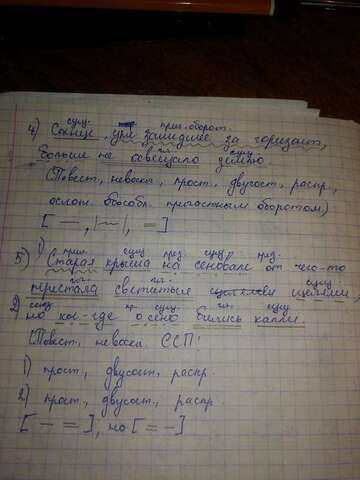 сущ. прич. оборот.
4) Солнце, уже зашедшее за горизонт,
гл. сущ.
больше не освещало землю.
(Повест., невоскл., прост., двусост., распр.,
ослож. обособл. причастным оборотом)
[ — , |~|, = ]
1) прил. сущ. пред. сущ. пред.
5) Старая крыша на сеновале от чего-то
гл. сущ.
пристала светиться щелями,
союз сущ. гл. сущ.
2) но кое-где били капли.
(Повест., невоскл. ССП:
1) прост., двусост., распр.
2) прост., двусост., распр.
[ — = ], но [ = - ]